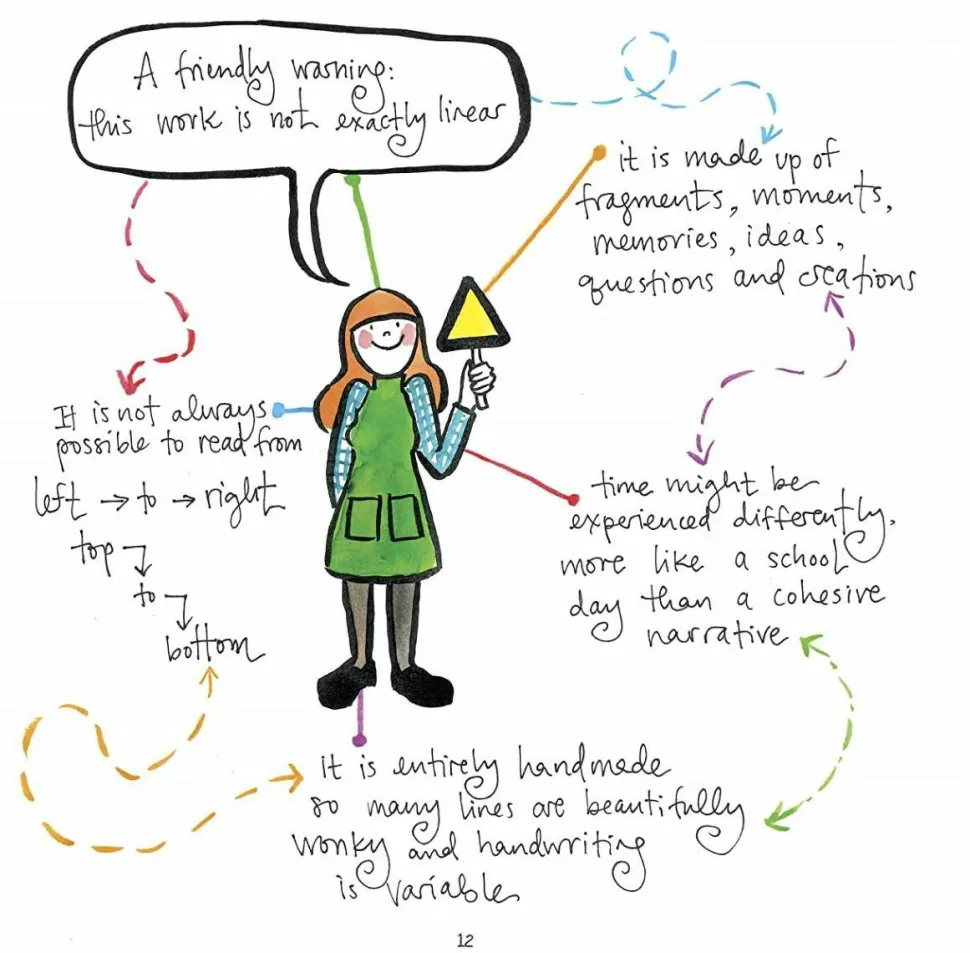 A friendly warning:
this work is not exactly linear
it is made up of
fragments, moments,
memories, ideas,
questions and creations
It is not always
possible to read from
left → to → right
top
to
bottom
time might be
experienced differently,
more like a school
day than a cohesive
narrative
it is entirely handmade
so many lines are beautifully
wonky and handwriting
is variable
12